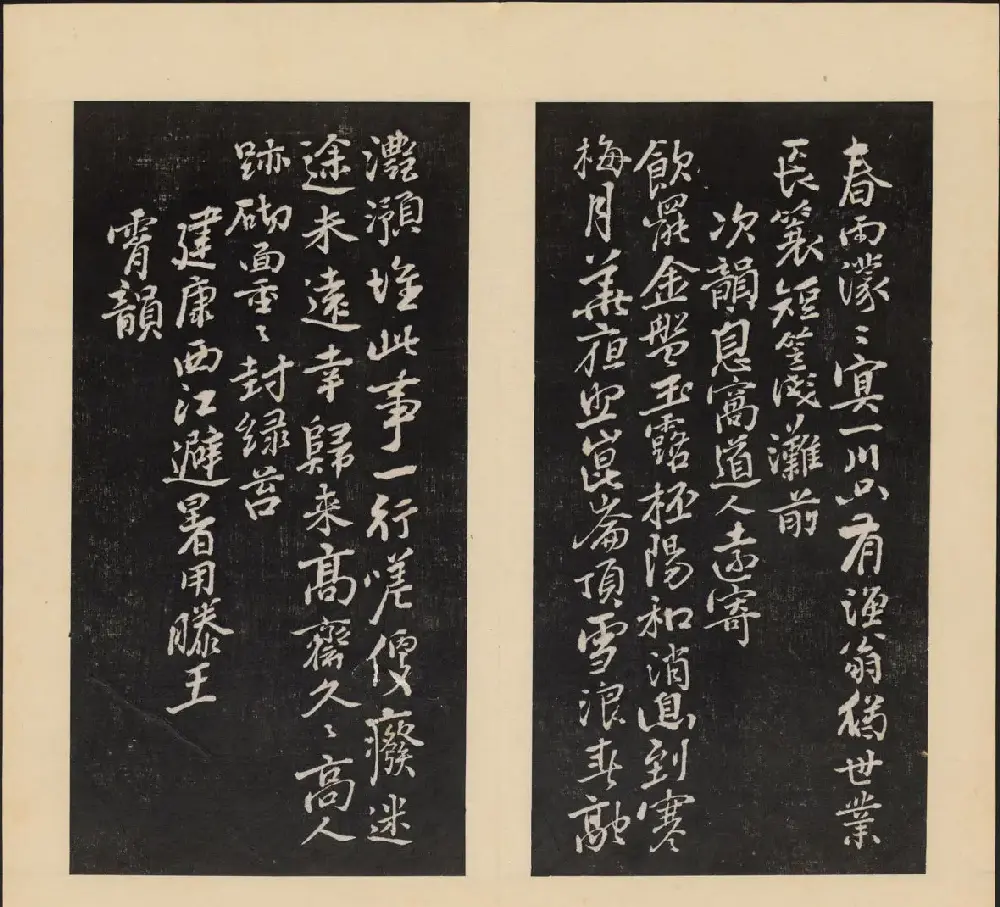 春雨濛〻寞一川只有漁翁猶世業
長蓑短笠淺灘前
次韻息窩道人遠寄
飲罷金盤玉露杯陽和消息到寒
梅月華夜照崑崙頂雪浪春融
灩澦堆此事一行嗟便癈迷
途未遠幸歸来高齋久〻高人
跡砌面重〻封緑苔
建康西江避暑用滕王
霄韻